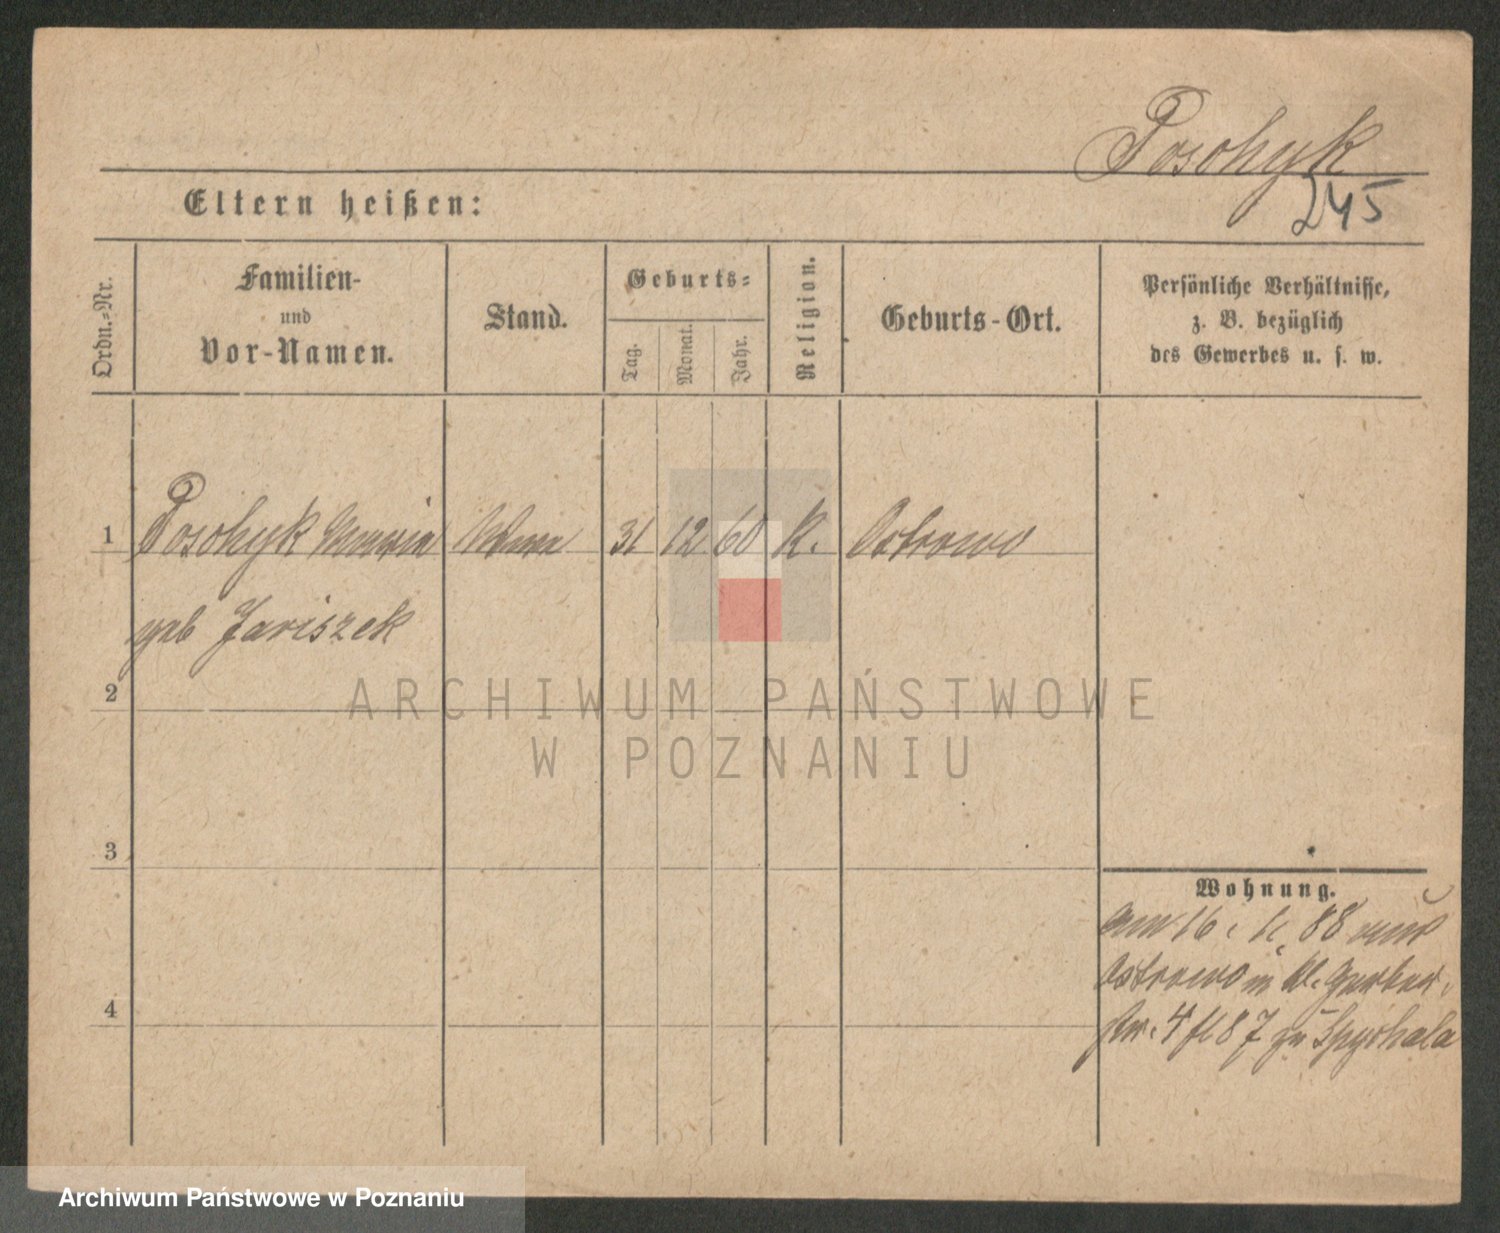 Posohyk
245
Eltern heißen:
Ordn.-Nr.
Familien-
und
Vor-Namen.
Stand.
Geburts-
Tag.
Monat.
Jahr.
Religion.
Geburts-Ort.
Persönliche Verhältnisse,
z. B. bezüglich
des Gewerbes u. s. w.
1 Posohyk Maria 31 12 60 K. Ostrowo
geb Jariszek
2
ARCHIWUM PAŃSTWOWE
W POZNANIU
3
Wohnung.
am 16. 88 aus
Ostrowo in Kl. Gerber
4
str. 4 fl 87 zu Spychala
Archiwum Państwowe w Poznaniu